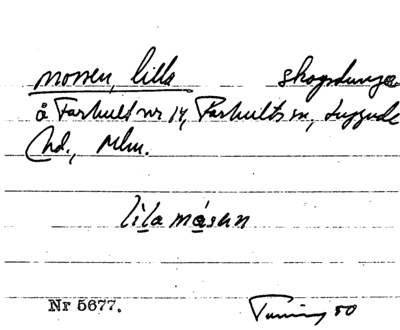 mossen, lilla skogsdunge
å Farhult nr 14, Farhults sn, Luggude
hd., Mlm.
lila måsen
Nr 5677. Tuning 50